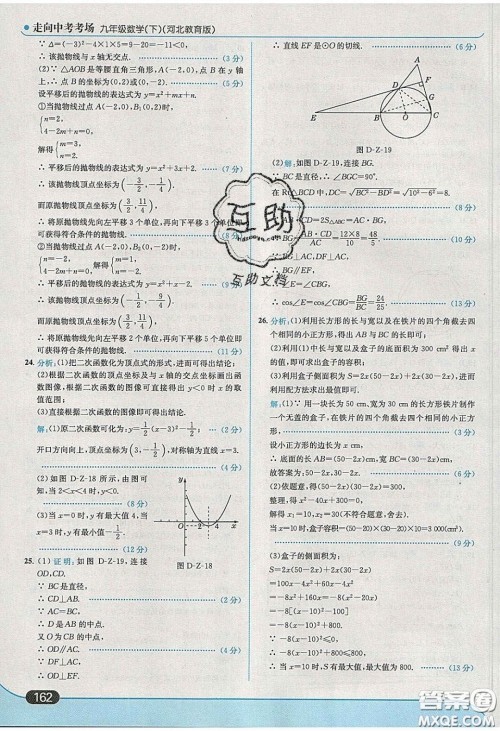 走向中考考场 九年级数学(下)(河北教育版)
∵ Δ=(-3)²-4×1×5=9-20=-11<0,
∴ 该抛物线与x轴无交点. (3分)
(2)∵ △AOB是等腰直角三角形,A(-2,0),点B在y轴
上,∴ 点B的坐标为(0,2)或(0,-2). (5分)
设平移后的抛物线的表达式为y=x²+mx+n.
①当抛物线过点A(-2,0),B(0,2)时,
{n=2,
4-2m+n=0,
解得{m=3,
n=2.
∴ 平移后的抛物线的表达式为y=x²+3x+2. (7分)
∴ 该抛物线顶点坐标为(-3/2,-1/4),
而原抛物线顶点坐标为(3/2,11/4),
∴ 将原抛物线先向左平移3个单位,再向下平移3个单位即
可获得符合条件的抛物线.
②当抛物线过点A(-2,0),B(0,-2)时,
{n=-2,
4-2m+n=0,
解得{m=1,
n=-2.
∴ 平移后的抛物线的表达式为y=x²+x-2.
∴ 该抛物线顶点坐标为(-1/2,-9/4),
而原抛物线顶点坐标为(3/2,11/4),
∴ 将原抛物线先向左平移2个单位,再向下平移5个单位即
可获得符合条件的抛物线. (11分)
24. 分析:(1)把二次函数化为顶点式的形式,进而可得出结论;
(2)根据二次函数的顶点坐标及与x轴的交点坐标画出函
数图像,根据二次函数的图像可直接得出y<0时x的取
值范围;
(3)直接根据二次函数的图像可得出结论.
解:(1)原二次函数可变形为y=1/2(x-3)²-1/2. (2分)
开口方向向上,顶点坐标为(3,-1/2),对称轴为直线x=3.
(4分)
(2)如图D-Z-18所示,由图可
知,当2<x<4时,y<0.
(8分)
(3)当x=0时,y有最大值4;当
x=3时,y有最小值-1/2.
(12分)
图D-Z-18
25. (1)证明:如图D-Z-19,连接
OD,CD.
∵ BC是直径,
∴ CD⊥AB. (2分)
∵ AC=BC,
∴ D是AB的中点.
又∵ O为CB的中点,
∴ OD∥AC. (4分)
∵ DF⊥AC,
∴ OD⊥EF.
∴ 直线EF是⊙O的切线. (6分)
图D-Z-19
(2)解:如图D-Z-19,连接BG.
∵ BC是直径,∴ ∠BGC=90°.
在Rt△BCD中,DC=√(BC²-BD²)=√(10²-6²)=8.
(8分)
∵ AB·CD=2S△ABC=AC·BG,
∴ BG=AB·CD/AC=12×8/10=48/5. (10分)
∵ BG⊥AC,DF⊥AC,
∴ BG∥EF.
∴ ∠E=∠CBG.
∴ cos∠E=cos∠CBG=BG/BC=24/25. (13分)
26. 分析:(1)利用长方形的长与宽以及在铁片的四个角截去四
个相同的小正方形,得出AB与BC的长即可;
(2)利用(1)中长与宽以及盒子的底面积为300 cm²得出
x的值,即可求出盒子的容积;
(3)利用盒子侧面积为S=2x(50-2x)+2x(30-2x),进而
利用配方法求出最值即可.
解:(1)∵ 用一块长为50 cm,宽为30 cm的长方形铁片制作
一个无盖的盒子,在铁片的四个角截去四个相同的小正方
形,
设小正方形的边长为x cm,
∴ 底面的长AB=(50-2x)cm,宽BC=(30-2x)cm.
故答案为:50-2x,30-2x. (6分)
(2)依题意,得(50-2x)(30-2x)=300.
整理,得x²-40x+300=0.
解得x₁=10,x₂=30(不符合题意,舍去).
当x=10时,盒子容积=(50-20)×(30-20)×10=3 000(cm³).
(9分)
(3)盒子的侧面积为:
S=2x(50-2x)+2x(30-2x)
=100x-4x²+60x-4x²
=-8x²+160x
=-8(x²-20x)
=-8[(x-10)²-100]
=-8(x-10)²+800.
∵ -8(x-10)²≤0,
∴ -8(x-10)²+800≤800.
∴ 当x=10时,S有最大值,最大值为800. (13分)
162
互助
互助文档
答案圈
MXQE.COM